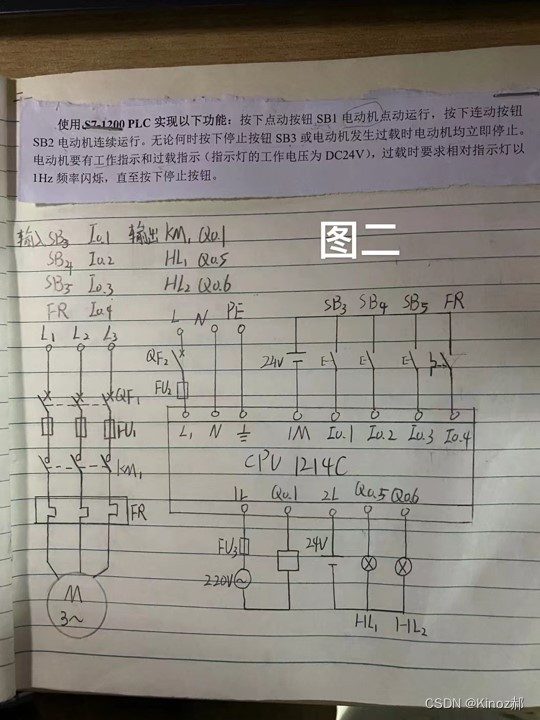 使用 S7-1200 PLC 实现以下功能：按下点动按钮 SB1 电动机点动运行，按下连动按钮
SB2 电动机连续运行。无论何时按下停止按钮 SB3 或电动机发生过载时电动机均立即停止。
电动机要有工作指示和过载指示（指示灯的工作电压为 DC24V），过载时要求相对指示灯以
1Hz 频率闪烁，直至按下停止按钮。
图二
输入 SB3 I0.1 输出 KM1 Q0.1
SB4 I0.2 HL1 Q0.5
SB5 I0.3 HL2 Q0.6
FR I0.4
L1 L2 L3
L N PE
SB3 SB4 SB5 FR
QF2
24V
FU2
QF1
FU1
L1 N 1M I0.1 I0.2 I0.3 I0.4
KM1
CPU 1214C
1L Q0.1 2L Q0.5 Q0.6
FR
FU3
24V
220V
M
3~
HL1 HL2
CSDN @Kinoz郝